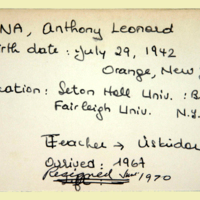 NA, Anthony Leonard
irth date : July 29, 1942
Orange, New
cation : Seton Hall Univ. : B
Fairleigh Univ. N.Y.
Teacher → Üsküdar
Arrived : 1967
Resigned Jan 1970